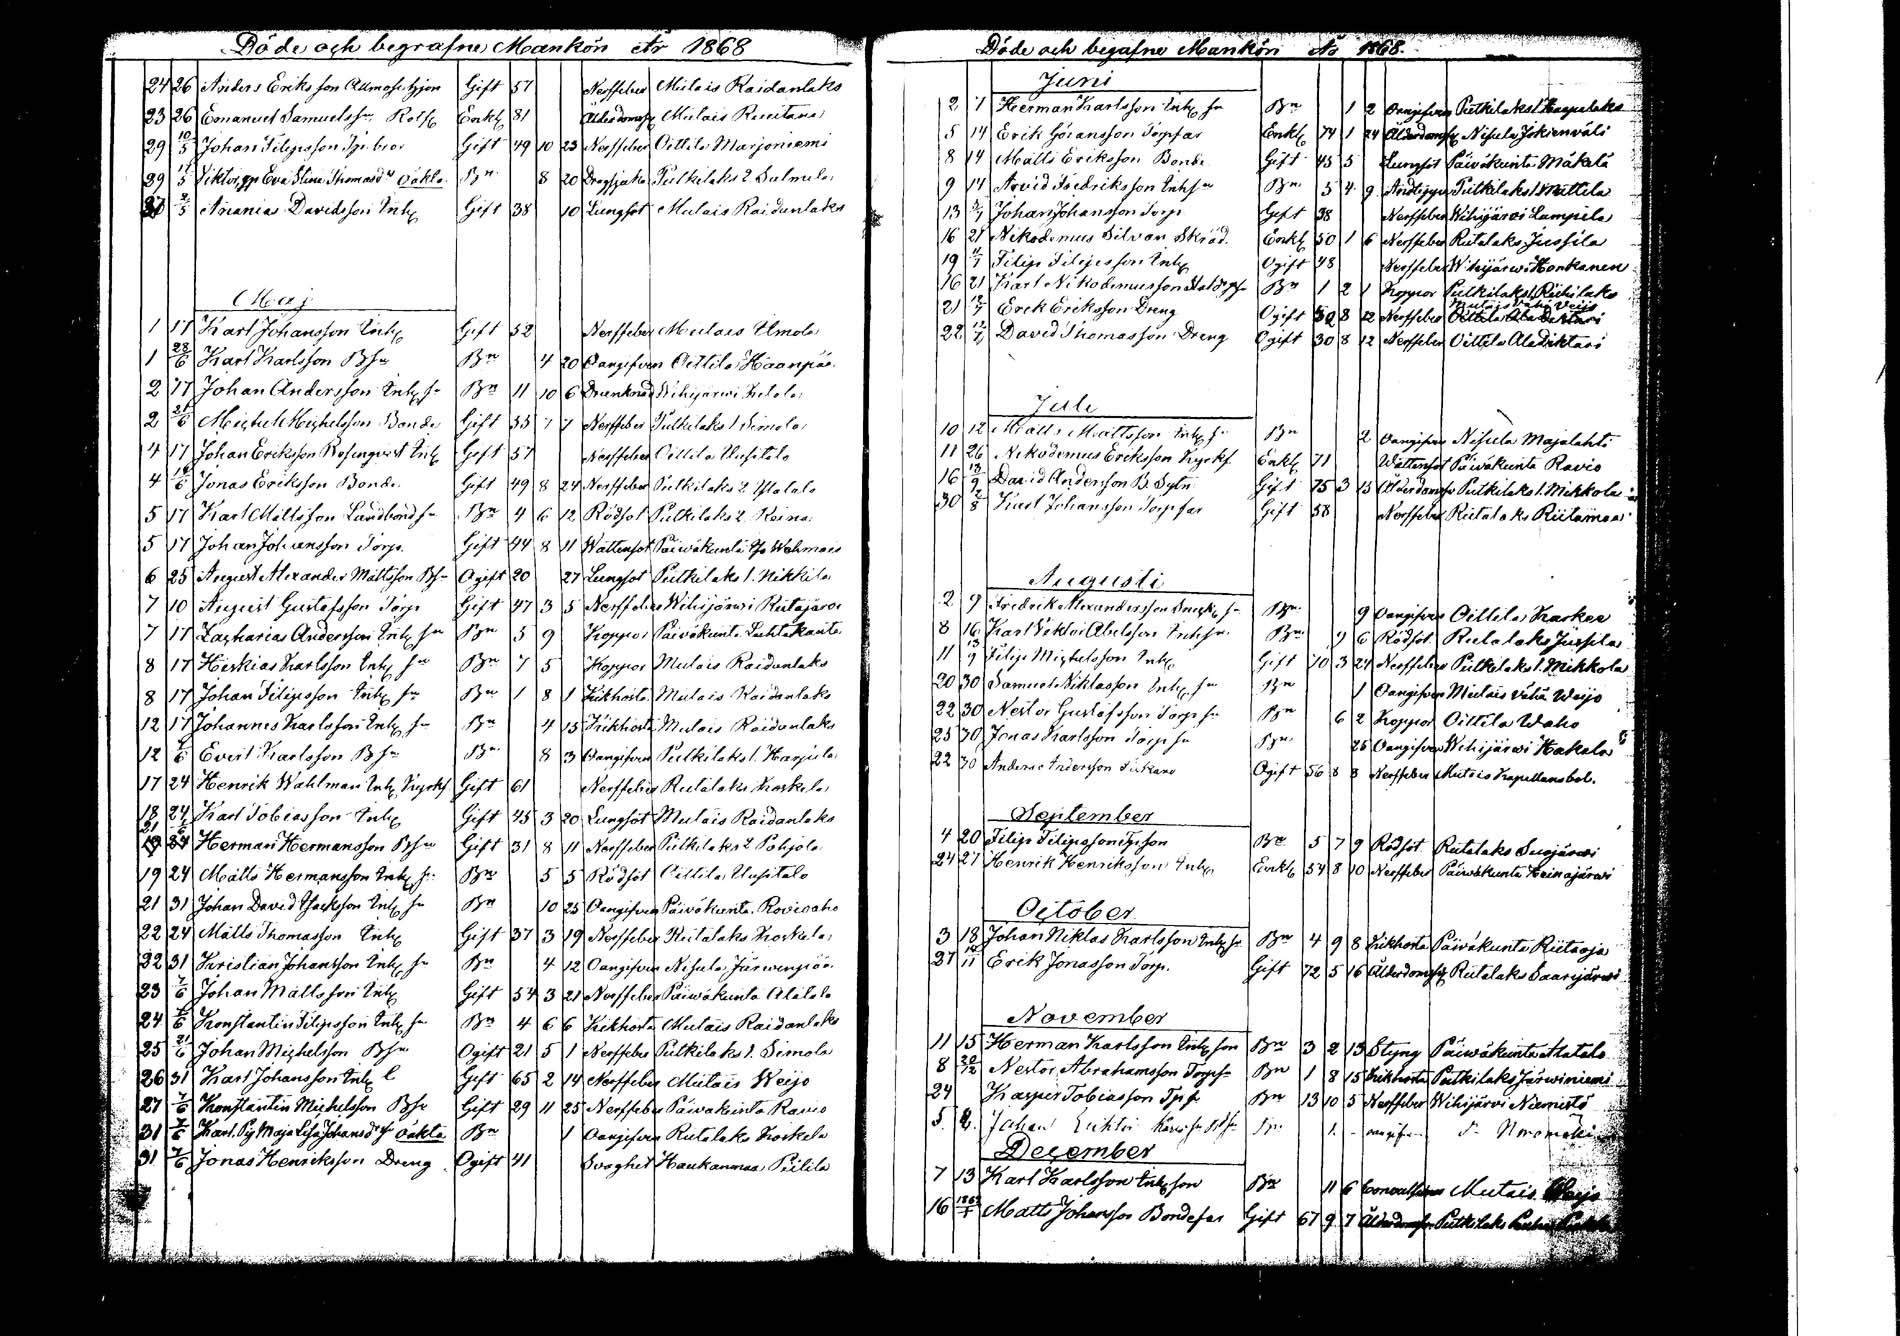 Döde och begrafne Mankön År 1868
24 26 Anders Eriksson Gift 57 Nerffeber Mulais Raidanlaks
23 26 Emanuel Samuelss Enkl 81 Ålderdomsf Mulais Ruutana
29 10/5 Johan Filipsson Gift 49 10 23 Nerffeber Oittila Marjoniemi
29 17/5 Viktor Eva Stina Thomasd oäkta Bn 8 20 Dragsjuka Putkilaks 2
Ananias Davidsson Inh Gift 38 10 Lungsot Mulais Raidanlaks
Maj
1 17 Karl Johansson Inh Gift 52 Nerffeber Mulais Umola
1 28/6 Karl Karlsson Bsn Bn 4 20 Oangifven Oittila Haanpää
2 17 Johan Andersson Inh sn Bn 11 10 6 Drunknad Wihijärwi
2 21/6 Michel Michelsson Bonde Gift 55 7 7 Nerffeber Putkilaks 1 Simola
4 17 Johan Eriksson Rosenqvist Inh Gift 57 Nerffeber Oittila Uusitalo
4 14/6 Jonas Eriksson Bonde Gift 49 8 24 Nerffeber Putkilaks 2 Ylatalo
5 17 Karl Mattsson Landbondsn Bn 4 6 12 Rödsot Putkilaks 2
5 17 Johan Johansson Torp. Gift 44 8 11 Wattensot Päiwäkunta
6 25 August Alexander Mattsson Bsn Ogift 20 27 Lungsot Putkilaks 1. Nikkila
7 10 August Gustafsson Torp Gift 47 3 5 Nerffeber Wihijärwi Rutajärwi
7 17 Zacharias Andersson Inh sn Bn 5 9 Koppor Päiväkunta
8 17 Hiskias Karlsson Inh sn Bn 7 5 Koppor Mulais Raidanlaks
8 17 Johan Filipsson Inh sn Bn 1 8 1 Kikhosta Mulais Raidanlaks
12 17 Johannes Karlsson Inh sn Bn 4 15 Kikhosta Mulais Raidanlaks
12 7/6 Evert Karlsson Bsn Bn 8 3 Oangifven Putkilaks 1. Harjula
17 24 Henrik Wahlman Inh Gift 61 Nerffeber Rutalaks Koskela
18 24 Karl Tobiasson Inh Gift 45 3 20 Lungsot Mulais Raidanlaks
Herman Hermansson Bsn Gift 31 8 11 Nerffeber Putkilaks 2 Pohjola
19 24 Matts Hermansson Inh sn Bn 5 5 Rödsot Oittila Uusitalo
21 31 Johan David Isacksson Inh sn Bn 10 25 Oangifven Päiväkunta Rovioaho
22 24 Matts Thomasson Inh Gift 37 3 19 Nerffeber Rutalaks Koskela
22 31 Kristian Johansson Inh sn Bn 4 12 Oangifven Nisula Järwenpää
23 7/6 Johan Mattsson Inh Gift 54 3 21 Nerffeber Päiwäkunta Alatalo
24 7/6 Konstantin Filipsson Inh sn Bn 4 6 6 Kikhosta Mulais Raidanlaks
25 21/6 Johan Michelsson Bsn Ogift 21 5 1 Nerffeber Putkilaks 1. Simola
26 31 Karl Johansson Inh Gift 65 2 14 Nerffeber Mulais Weijo
27 7/6 Konstantin Michelsson Bsn Gift 29 11 25 Nerffeber Päivakunta Ravio
31 7/6 Karl. Pig Maja Lisa Johansd oäkta Bn 1 Oangifven Rutalaks Koskela
31 7/6 Jonas Henriksson Dreng Ogift 41 Svaghet Haukanmaa Piilila
Döde och begafne Mankön År 1868.
Juni
2 7 Herman Karlsson Inh sn Bn 1 2 Oangifven Putkilaks 1 Harjulaks
5 14 Erik Göransson Torpfar Enkl 74 1 24 Ålderdomsf Nisula Jokienväli
8 14 Matts Eriksson Bonde Gift 45 5 Lungsot Päiväkunta Mäkelä
9 14 Arvid Fredriksson Inhsn Bn 5 4 9 Putkilaks 1 Mattila
13 5/7 Johan Johansson Torp Gift 38 Nerffeber Wihijärvi Lampila
16 21 Nikodemus Silvan Skräd. Enkl 50 1 6 Nerffeber Rutalaks Jussila
19 11/7 Filip Filipsson Inh Ogift 48 Nerffeber Wihijärwi Honkanen
16 21 Karl Nikodemusson Bn 1 2 1 Koppor Putkilaks
21 12/7 Erik Eriksson Dreng Ogift 8 12 Nerffeber Mulais Vähä Veijo
22 12/7 David Thomasson Dreng Ogift 30 8 12 Nerffeber Oittila Ala Diktari
Juli
10 12 Matts Mattsson Inh sn Bn 2 Oangifven Nisula Majalahti
11 26 Nikodemus Eriksson Enkl 71 Wattensot Päiväkunta Ravio
16 13/9 David Andersson B. Sytn Gift 75 3 15 Ålderdomsf Putkilaks 1. Mikkola
30 2/8 Karl Johansson Torpfar Gift 58 Nerffeber Rutalaks Riitamaa
Augusti
2 9 Fredrik Alexandersson sn Bn 9 Oangifven Oittila Karkee
8 16 Karl Viktor Abelsson Inhsn Bn 9 6 Rödsot Rutalaks Jussila
11 13/9 Filip Michelsson Inh Gift 70 3 24 Nerffeber Putkilaks 1. Mikkola
20 30 Samuel Niklasson Inh sn Bn 1 Oangifven Mulais Vähä Weijo
22 30 Nestor Gustafsson Torp sn Bn 6 2 Koppor Oittila Waho
25 30 Jonas Karlsson Torp sn Bn 25 Oangifven Wihijärwi Hakala
22 30 Anders Andersson Ogift 56 8 8 Nerffeber Mulais Kapellansbol.
September
4 20 Filip Filipsson Bn 5 7 9 Rödsot Rutalaks Suojärwi
24 27 Henrik Henriksson Inh Enkl 54 8 10 Nerffeber Päiwäkunta Heinäjärwi
October
3 18 Johan Niklas Karlsson Inh sn Bn 4 9 8 Kikhosta Päiväkunta Riitaoja
27 14/11 Erik Jonasson Torp. Gift 72 5 16 Ålderdomsf Rutalaks Saarijärwi
November
11 15 Herman Karlsson Inh son Bn 3 2 13 Styng Päiwäkunta Alatalo
8 20/12 Nestor Abrahamsson Torpsn Bn 1 8 15 Kikhosta Putkilaks Järwiniemi
24 Kasper Tobiasson Bn 13 10 5 Nerffeber Wihijärvi Niemistö
5 Johan Bn 1
December
7 13 Karl Karlsson Inh son Bn 11 6 Mulais Weijo
16 1869 Matts Johansson Bondefar Gift 67 9 7 Ålderdomsf Putkilaks